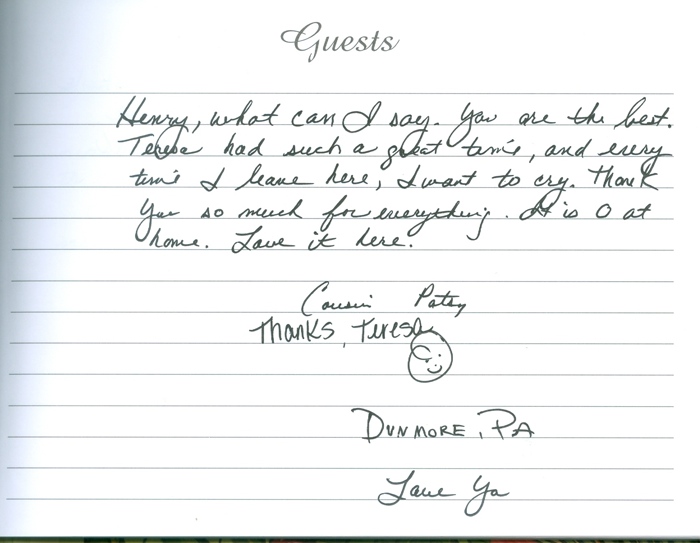 Guests
Henry, what can I say. You are the best.
Teresa had such a great time, and every
time I leave here, I want to cry. Thank
You so much for everything. It is 0 at
home. Love it here.
Cousin Patsy
Thanks, Teresa
Dunmore, PA
Love Ya